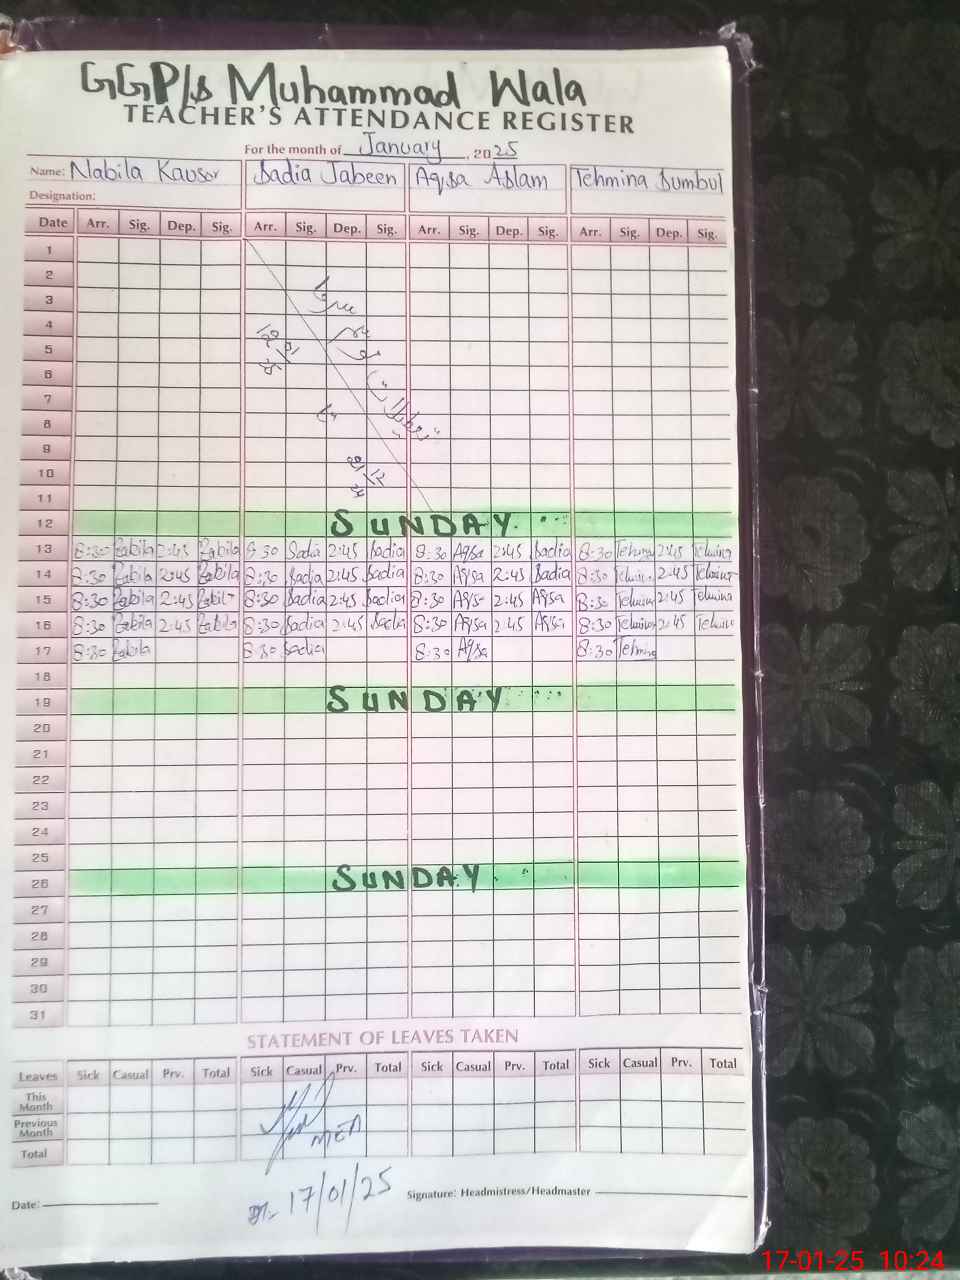 GGP/s Muhammad Wala
TEACHER'S ATTENDANCE REGISTER
For the month of January, 2025
Name: Nabila Kausar Sadia Jabeen Aqsa Aslam Tehmina Sumbul
Designation:
Date Arr. Sig. Dep. Sig. Arr. Sig. Dep. Sig. Arr. Sig. Dep. Sig. Arr. Sig. Dep. Sig.
1
2
3
4
5
6
7
8
9
10
11
12 SUNDAY
13 8:30 Nabila 2:45 Nabila 8:30 Sadia 2:45 Sadia 8:30 Aqsa 2:45 Sadia 8:30 Tehmina 2:45 Tehmina
14 8:30 Nabila 2:45 Nabila 8:30 Sadia 2:45 Sadia 8:30 Aqsa 2:45 Sadia 8:30 Tehmina 2:45 Tehmina
15 8:30 Nabila 2:45 Nabila 8:30 Sadia 2:45 Sadia 8:30 Aqsa 2:45 Aqsa 8:30 Tehmina 2:45 Tehmina
16 8:30 Nabila 2:45 Nabila 8:30 Sadia 2:45 Sadia 8:30 Aqsa 2:45 Aqsa 8:30 Tehmina 2:45 Tehmina
17 8:30 Nabila 8:30 Sadia 8:30 Aqsa 8:30 Tehmina
18
19 SUNDAY
20
21
22
23
24
25
26 SUNDAY
27
28
29
30
31
STATEMENT OF LEAVES TAKEN
Leaves Sick Casual Prv. Total Sick Casual Prv. Total Sick Casual Prv. Total Sick Casual Prv. Total
This Month
Previous Month
MEA
Total
Date: 17/01/25 Signature: Headmistress/Headmaster
17-01-25 10:24